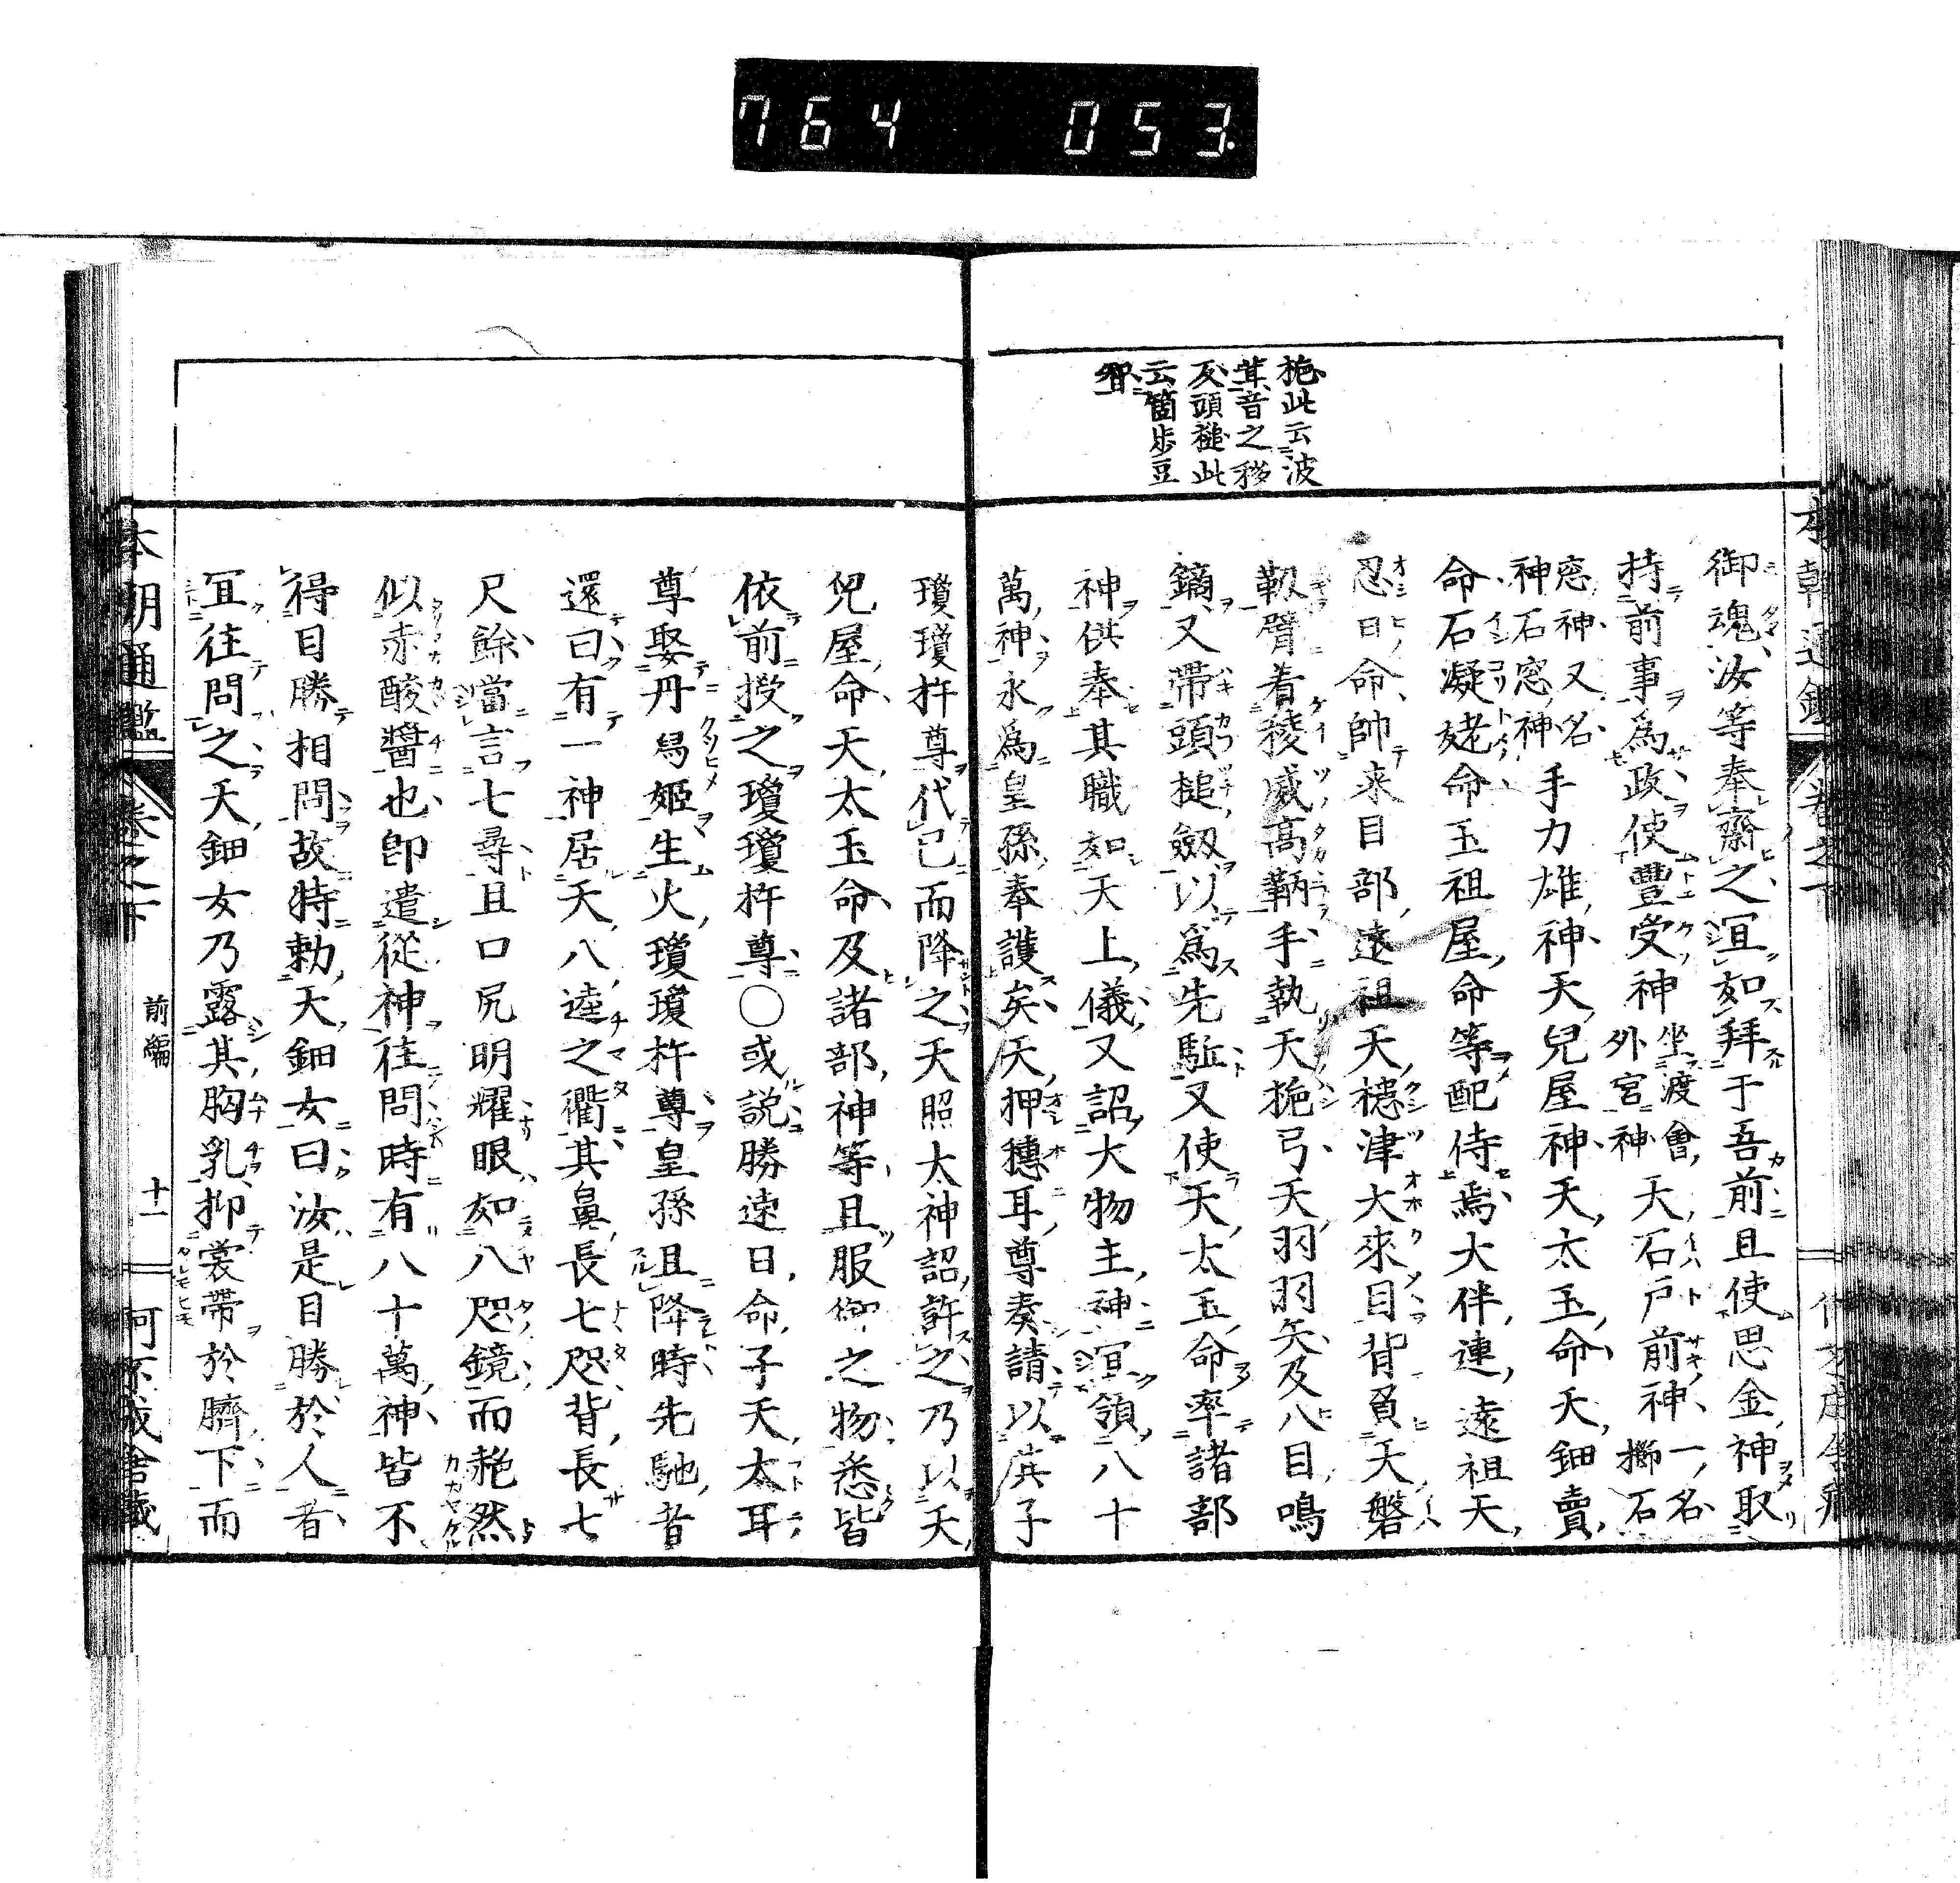 764 053
梔此云波
茸、音之移
反頭槌此
云箇歩豆
智
御魂汝等奉齋之宜如拜于吾前且使思金神取
持前事爲政使豐受神坐渡會外宮神天石戸前神一名櫛石
窓神又名神石窓神手力雄神天兒屋神天太玉命天鈿賣
命石凝姥命玉祖屋命等配侍焉大伴連遠祖天
忍日命帥来目部遠祖天槵津大來目背負天磐
靫臂着稜威高鞆手執天梔弓天羽羽矢及八目鳴
鏑又帶頭槌劔以爲先駈又使天太玉命率諸部
神供奉其職如天上儀又詔大物主神宜領八十
萬神永爲皇孫奉護矣天押穗耳尊奏請以其子
瓊瓊杵尊代已而降之天照太神詔許之乃以天
兒屋命天太玉命及諸部神等且服御之物悉皆
依前授之瓊瓊杵尊○或説勝速日命子天太耳
尊娶丹舄姬生火瓊瓊杵尊皇孫且降時先馳者
還曰有一神居天八逵之衢其鼻長七咫背長七
尺餘當言七尋且口尻明耀眼如八咫鏡而赩然
似赤酸醬也卽遣從神往問時有八十萬神皆不
得目勝相問故特勅天鈿女曰汝是目勝於人者
宜往問之天鈿女乃露其胸乳抑裳帶於臍下而
本朝通鑑 卷之下 前編 十一